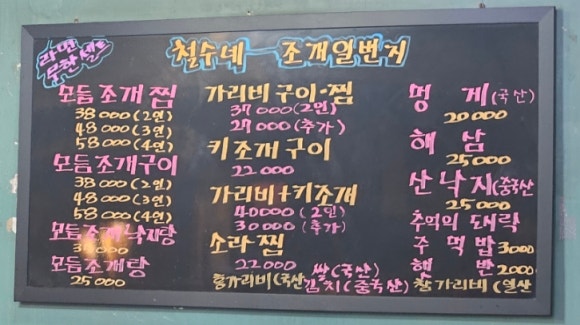 라면
무한셀프
철수네 조개일번지
모듬조개찜
38000(2인)
48000(3인)
58000(4인)
모듬조개구이
38000(2인)
48000(3인)
58000(4인)
모듬조개낙지탕
모듬조개탕
25000
가리비구이·찜
37000(2인)
27000(추가)
키조개구이
22000
가리비+키조개
40000(2인)
30000(추가)
소라찜
22000
쌀(국산)
참가리비(국산 김치(중국산) 참가리비(일산
멍게(국산)
20000
해삼
25000
산낙지(중국산
25000
추억의 도시락
주먹밥 3000
햇반 2000